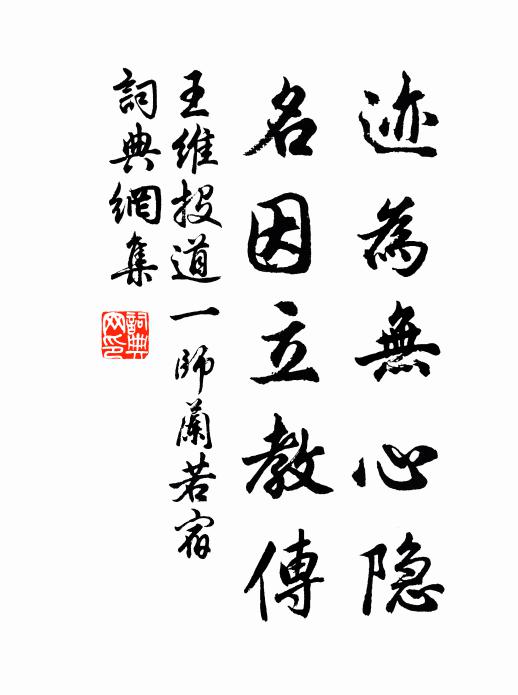 迹為無心隐
名因立教傳
王維投道一師蘭若宿
詞典網集
詞典
网印